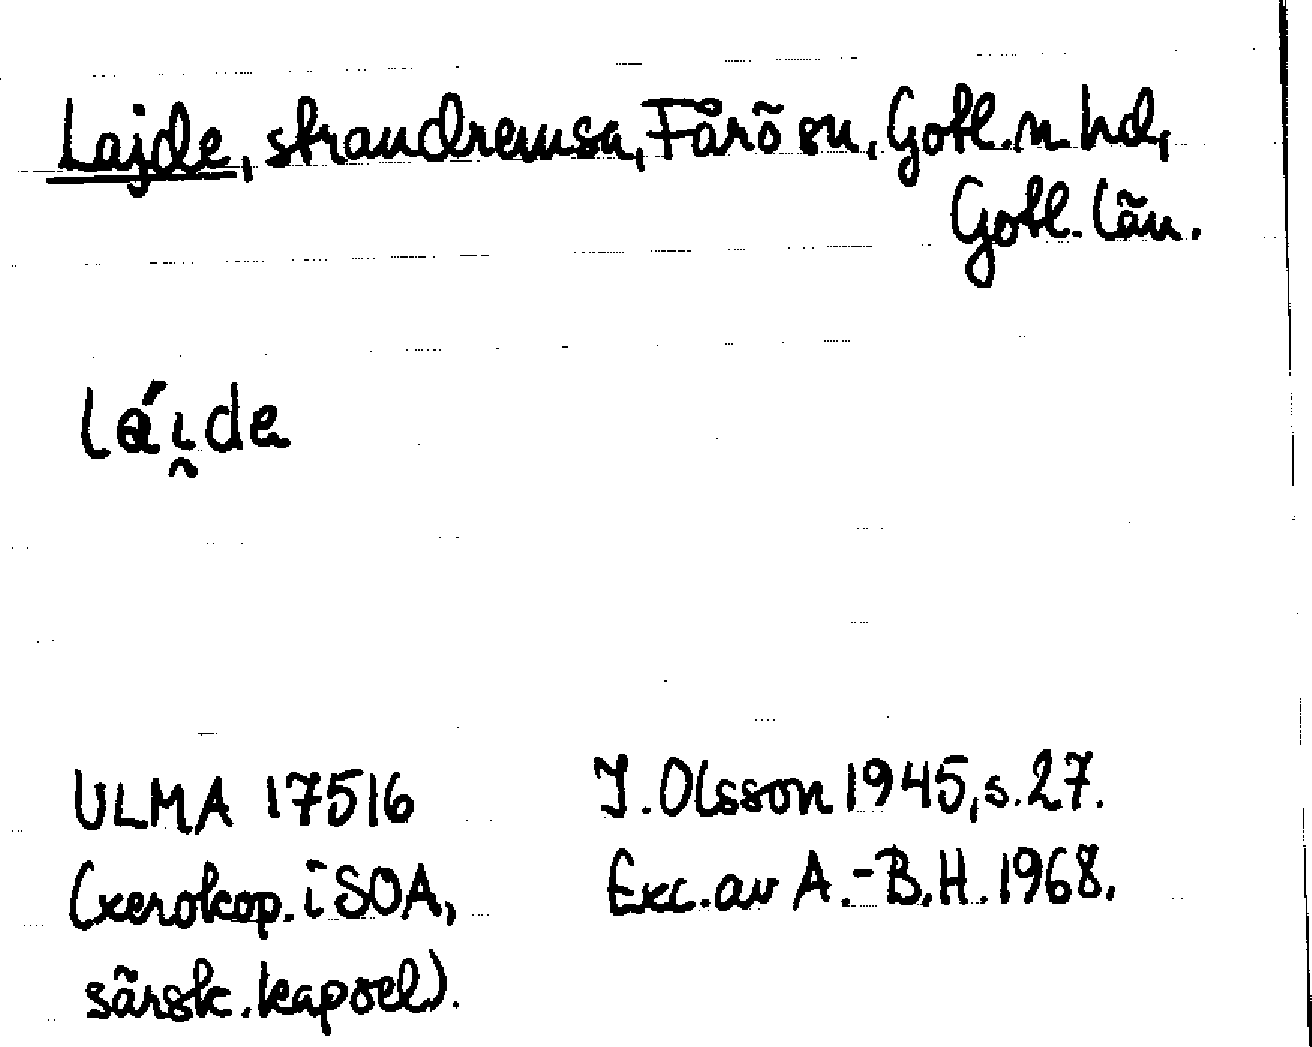 Lajde, strandremsa, Fårö sn, Gotl. n. hd,
Gotl. län.
lái̯de
ULMA 17516
(xerokop. i SOA,
särsk. kapsel).
I. Olsson 1945, s. 27.
Exc. av A.-B.H. 1968.